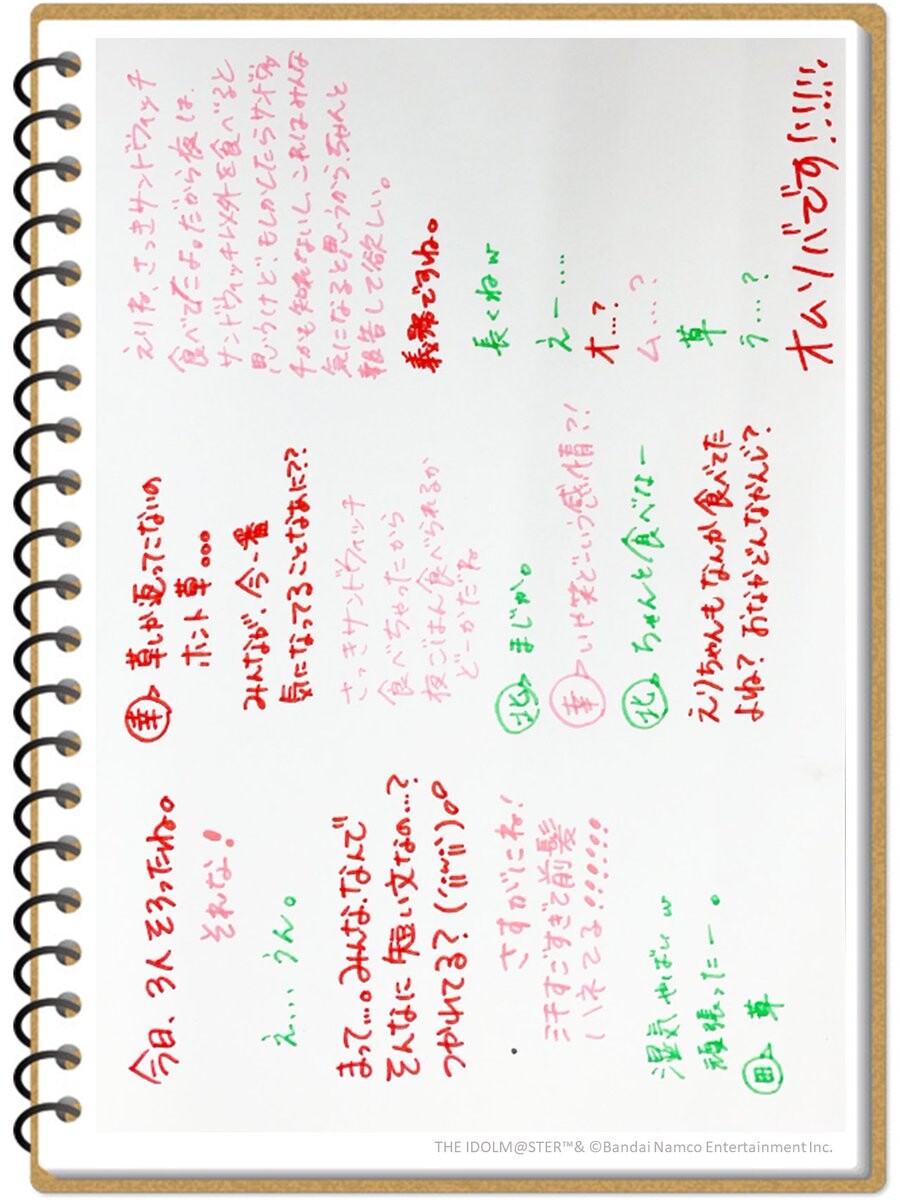 今日、3人そろったね。
それな!
え... うん。
まって....。みんな、なんで
そんなに短い文なの...?
つかれてる?
さすがにね!
汗すごすぎて前髪
ハネてる!!!!!!
湿気やばいw
頑張ったー。
田 草
華 草しか返ってこないの
ホント草。。。
みんなが、今一番
気になってることなあに??
さっきサンドウィッチ
食べちゃったから
夜ごはん食べられるか
どーかだね。
北 まじか。
華 いや笑どーいう感情?!
北 ちゃんと食べなー
えりちゃんもなんか食べてた
よね?おなかどんなかんじ?
さっきサンドウィッチ
食べてたよ。だから夜は、
サンドウィッチ以外を食べると
思うけど、もしかしたらサンドウィッ
チかも知れないし、これはみんな
気になると思うから、ちゃんと
報告して欲しい。
義務ですね。
長くねw
えー.....
オ...?
ム...?
草
う...?
オムソバです!!!!!!
THE IDOLM@STER™& ©Bandai Namco Entertainment Inc.